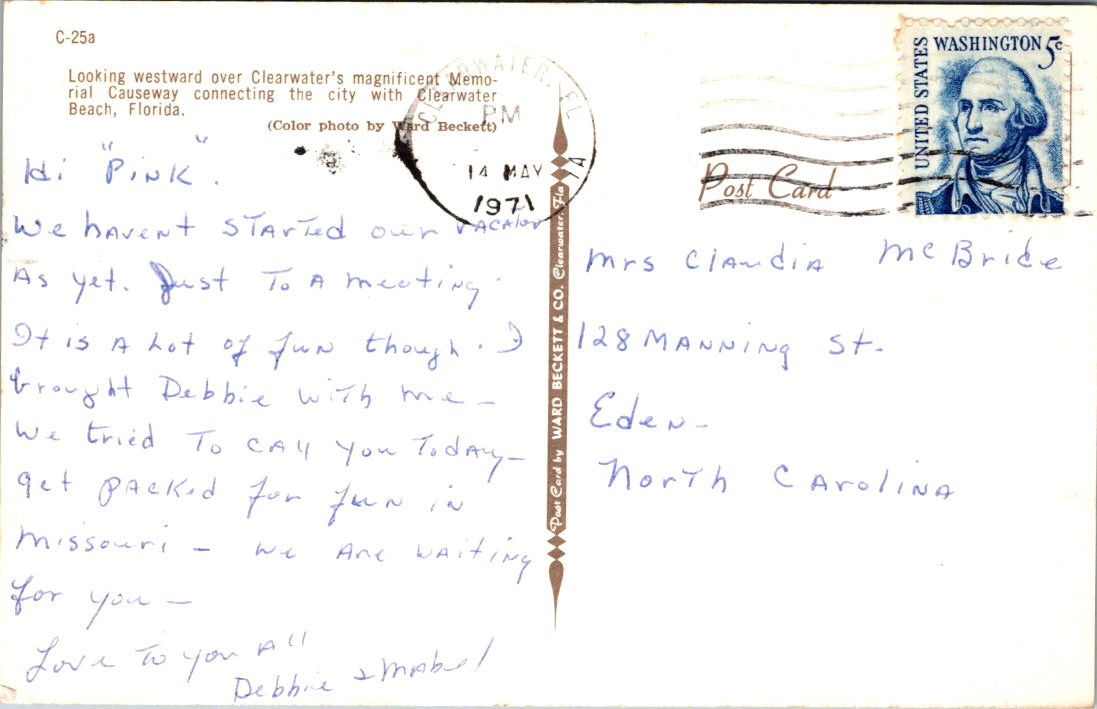 C-25a
Looking westward over Clearwater's magnificent Memo-
rial Causeway connecting the city with Clearwater
Beach, Florida.
(Color photo by Ward Beckett)
CLEARWATER, FL
PM
14 MAY
1971
1A
UNITED STATES
WASHINGTON 5c
Post Card
Post Card by WARD BECKETT & CO. Clearwater, Fla
Hi "Pink".
We havent started our vacation
as yet. Just to a meeting.
It is a lot of fun though. I
brought Debbie with me –
We tried to call you today –
get packed for fun in
Missouri – we are waiting
for you –
Love to you all
Debbie & Mabel
Mrs Claudia McBride
128 Manning St.
Eden –
North Carolina